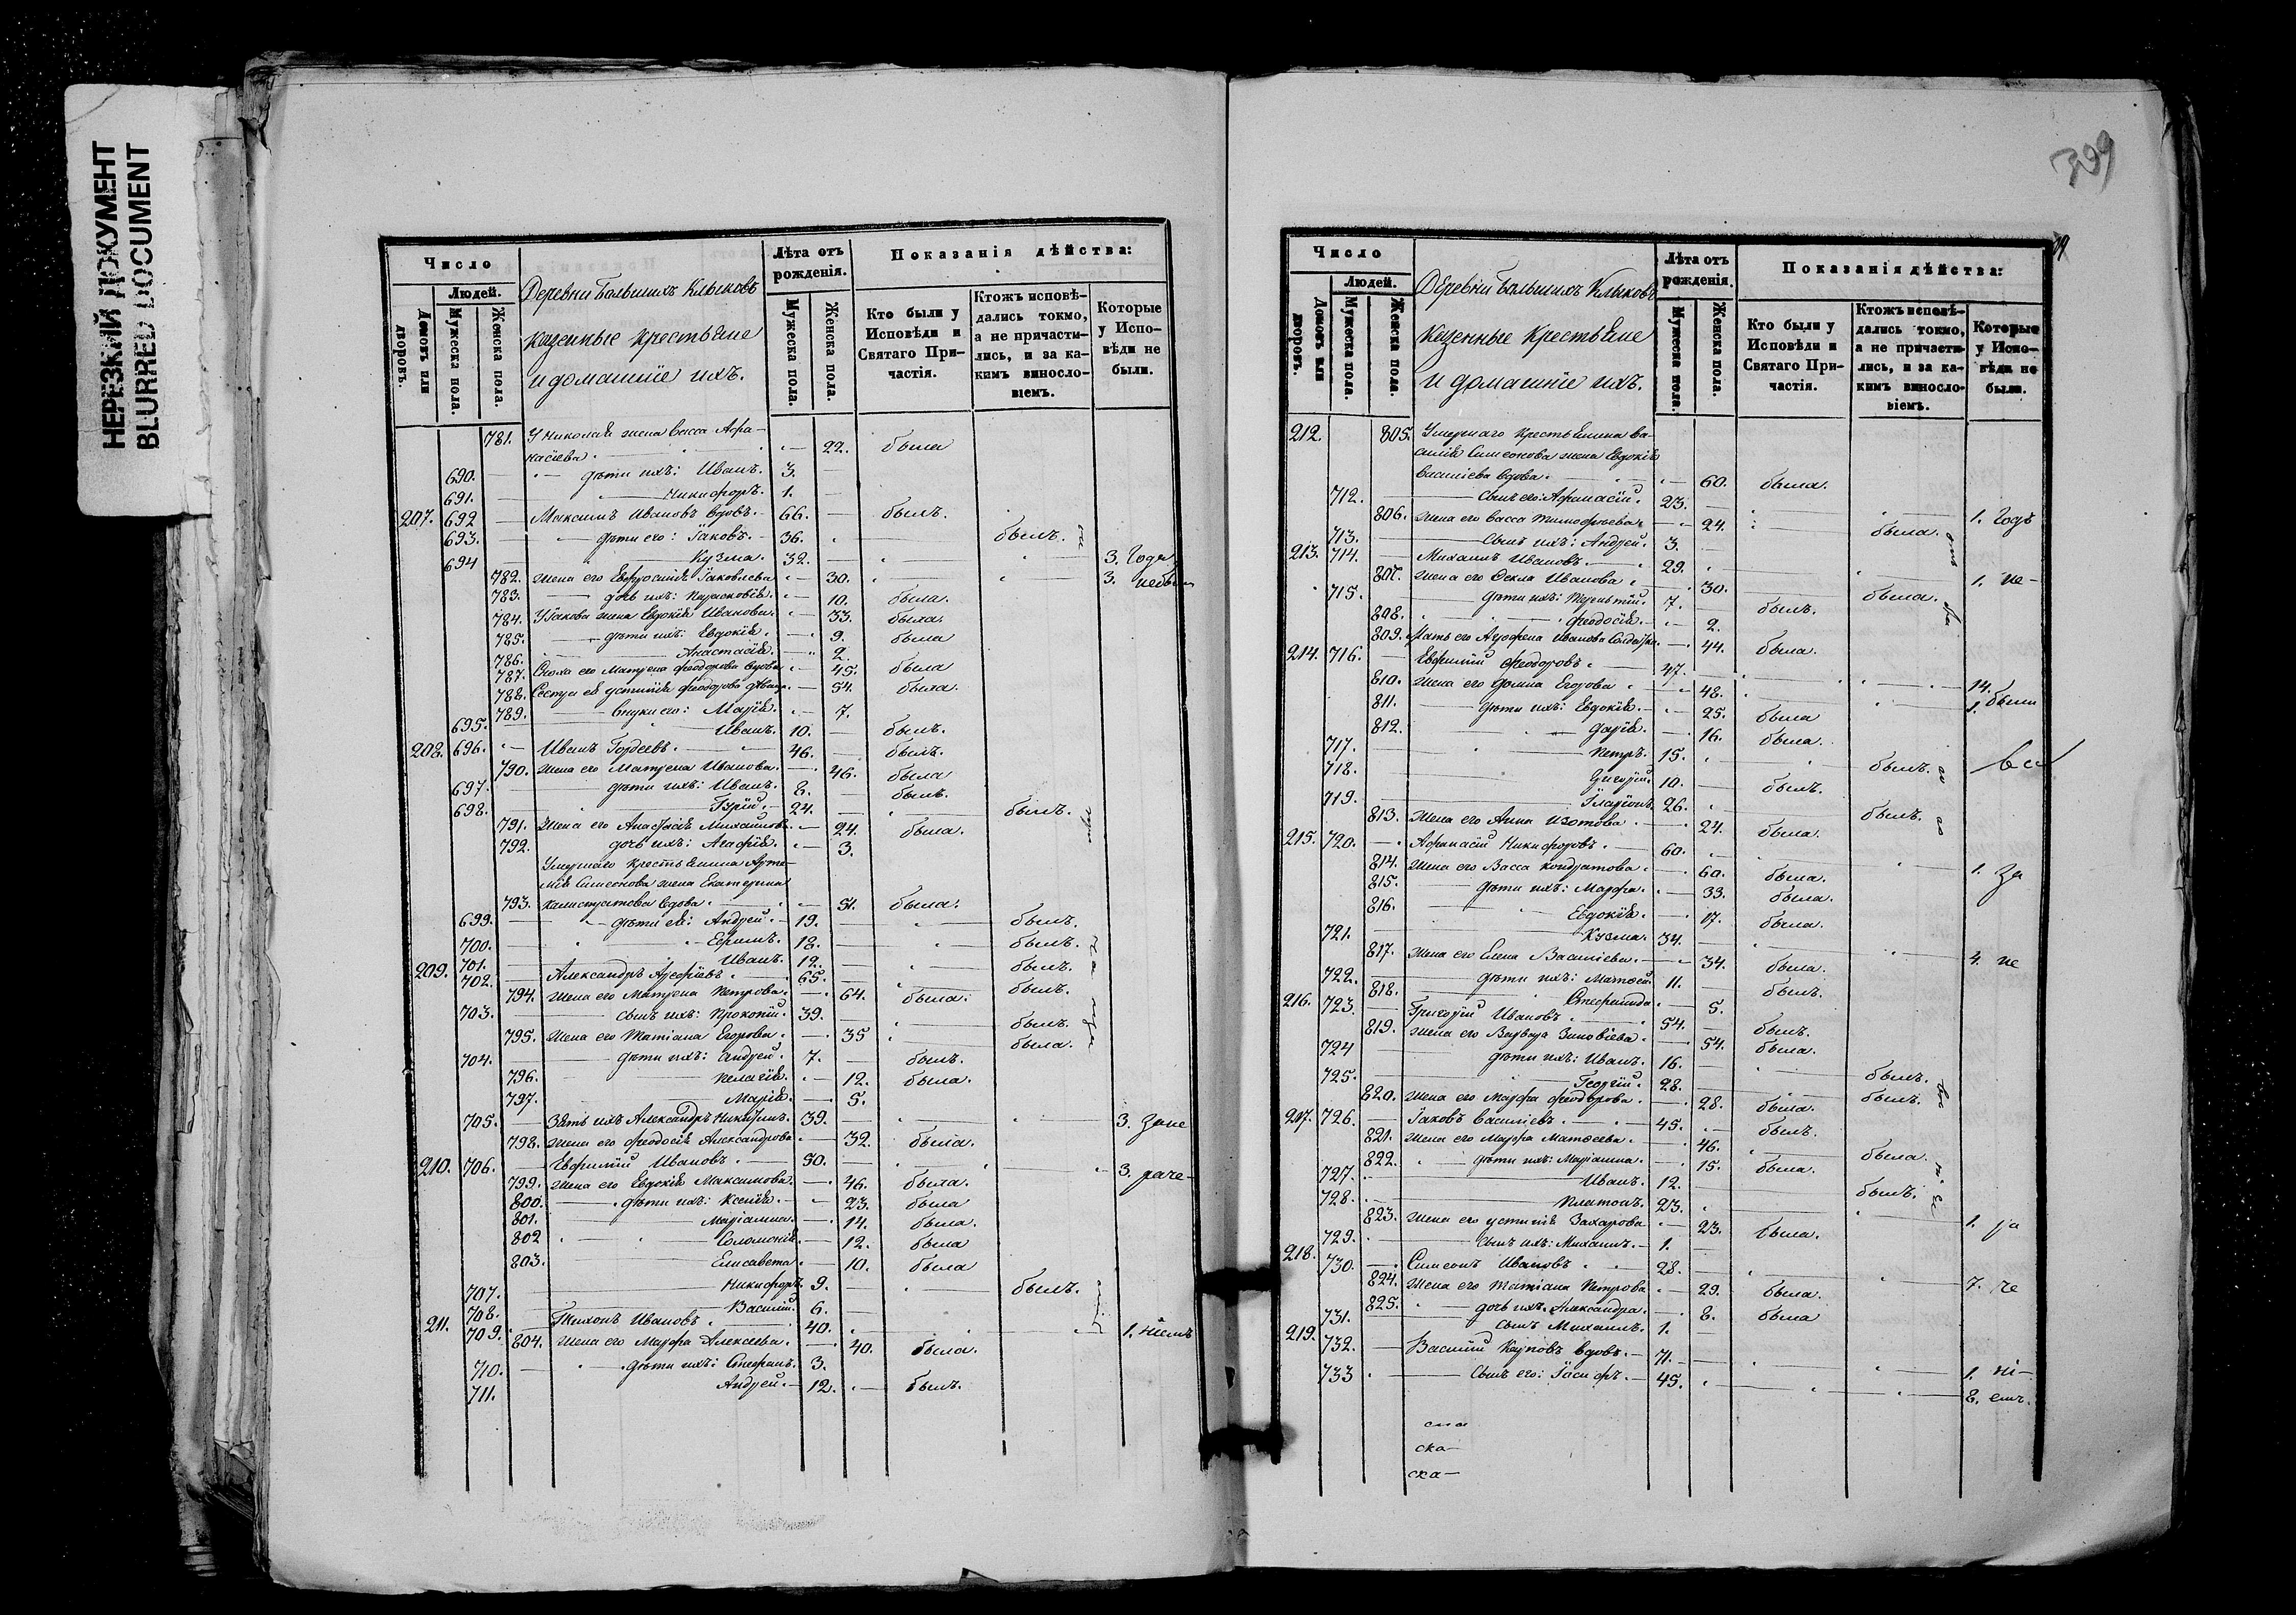 НЕРЕЗКИЙ ДОКУМЕНТ
BLURRED DOCUMENT
Число
Людей.
Домовъ или дворовъ.
Мужеска пола.
Женска пола.
Деревни Большихъ Клыковъ
казенные крестьяне
и домашніе ихъ.
Лѣта отъ рожденія.
Мужеска пола.
Женска пола.
Показанія дѣйства:
Кто были у Исповѣди и Святаго При-частія.
Ктожъ исповѣ-дались токмо, а не причасти-лись, и за ка-кимъ винносло-віемъ.
Которые у Испо-вѣди не были.
781. У Николая жена Васса Афа-
насіева 22. была
690. дѣти ихъ: Иванъ. 3.
691. Никифоръ. 1.
207. 692 Максимъ Ивановъ вдовъ. 66. былъ.
693. дѣти его: Іаковъ. 36. былъ.
694 Кузма. 32. 3. Года
782. жена его Евфросинія Іаковлева 30. 3.
783. дочь ихъ: Параскевія. 10. была.
784. У Іакова жена Евдокія Иванова. 33. была.
785. дѣти ихъ: Евдокія. 9. была
786. Анастасія. 2.
787. Сноха его Матрена Феодорова вдова 45. была
788. Сестра ея Устинія Феодорова 54. была.
789. внуки его: Марія. 7.
695. Иванъ. 10. былъ.
208. 696. Иванъ Гордеевъ. 46. былъ.
790. жена его Матрена Иванова. 46. была
697. дѣти ихъ: Иванъ. 8. былъ.
698. Гурій. 24. былъ.
791. Жена его Анастасія Михаилова 24. была.
792. дочь ихъ: Агафія. 3.
Умершаго крестьянина Арте-
мія Симеонова жена Екатерина
793. Калистратова вдова. 51. была.
699. дѣти ея: Андрей. 19. былъ.
700. Ефимъ. 18. былъ.
701. Иванъ. 12. былъ.
209. 702. Александръ Арефіевъ. 65. былъ.
794. жена его Матрена Петрова. 64. была.
703. сынъ ихъ: Прокопій. 39. былъ.
795. Жена его Татіана Егорова. 35 была.
704. дѣти ихъ: Андрей. 7. былъ.
796. Пелагія. 12. была.
797. Марія. 5.
705. Зять ихъ Александръ 39. 3.
798. жена его Феодосія Александрова 32. была.
210. 706. Евфимій Ивановъ. 50. 3.
799. жена его Евдокія Максимова. 46. была.
800. дѣти ихъ: Ксенія. 23. была
801. Маріамна. 14. была.
802 Соломонія. 12. была
803. Елисавета. 10. была
707. Никифоръ. 9. былъ.
708. Василій. 6.
211. 709. Тихонъ Ивановъ. 40. 1.
804. Жена его Марфа Алексеева. 40. была.
710. дѣти ихъ: Стефанъ. 3.
711. Андрей. 12. былъ.
399
Число
Людей.
Домовъ или дворовъ.
Мужеска пола.
Женска пола.
Деревни Большихъ Клыковъ
казенные крестьяне
и домашніе ихъ.
Лѣта отъ рожденія.
Мужеска пола.
Женска пола.
Показанія дѣйства:
Кто были у Исповѣди и Святаго При-частія.
Ктожъ исповѣ-дались токмо, а не причасти-лись, и за ка-кимъ винносло-віемъ.
Которые у Испо-вѣди не были.
212. 805. Умершаго крестьянина Ва-
силія Симеонова жена Евдокія
Василіева вдова. 60. была.
712. сынъ его: Афанасій. 23. 1. Годъ
806. жена его Васса Тимофеева 24. была.
713. сынъ ихъ: Андрей. 3.
213. 714. Михаилъ Ивановъ. 29. 1. не-
807. жена его Фекла Иванова 30. была.
715. дѣти ихъ: Терентій. 7. былъ.
808. Феодосія. 2.
809. Мать его Агрофена Иванова 44. была.
214. 716. Евфимій Феодоровъ. 47. 14.
810. жена его Домна Егорова 48. 1. были
811. дѣти ихъ: Евдокія. 25. была
812. Дарія. 16. была.
717. Петръ. 15. былъ.
718. Григорій. 10. былъ.
719. Іларіонъ. 26. былъ.
813. Жена его Анна Изотова 24. была.
215. 720. Афанасій Никифоровъ. 60. 1. за
814. жена его Васса Кондратова. 60. была.
815. дѣти ихъ: Марфа. 33. была.
816. Евдокія. 17. была.
721. Кузма. 34. 4. не
817. Жена его Елена Василіева. 34. была.
722. дѣти ихъ: Матфей. 11. былъ.
818. Стефанида 5.
216. 723. Григорій Ивановъ. 54. былъ.
819. жена его Варвара Зиновіева. 54. была.
724 дѣти ихъ: Иванъ. 16. былъ.
725. Георгій. 28. былъ.
820. Жена его Марфа Феодорова. 28. была.
217. 726. Іаковъ Василіевъ. 45. былъ.
821. Жена его Марфа Матфеева. 46. была.
822. дѣти ихъ: Маріамна. 15. была.
727. Иванъ. 12. былъ.
728. Платонъ. 23. 1. ра
823. Жена его Устинія Захарова 23. была.
729. сынъ ихъ: Михаилъ. 1.
218. 730. Симеонъ Ивановъ 28. 7. че
824. Жена его Татіана Петрова 29. была.
825. дочь ихъ. Александра. 8. была
731. сынъ Михаилъ. 1.
219. 732. Василій Карповъ вдовъ. 71. 1. ні-
733 Сынъ его: Іосифъ. 45. 8. емъ.
ска-
ска-